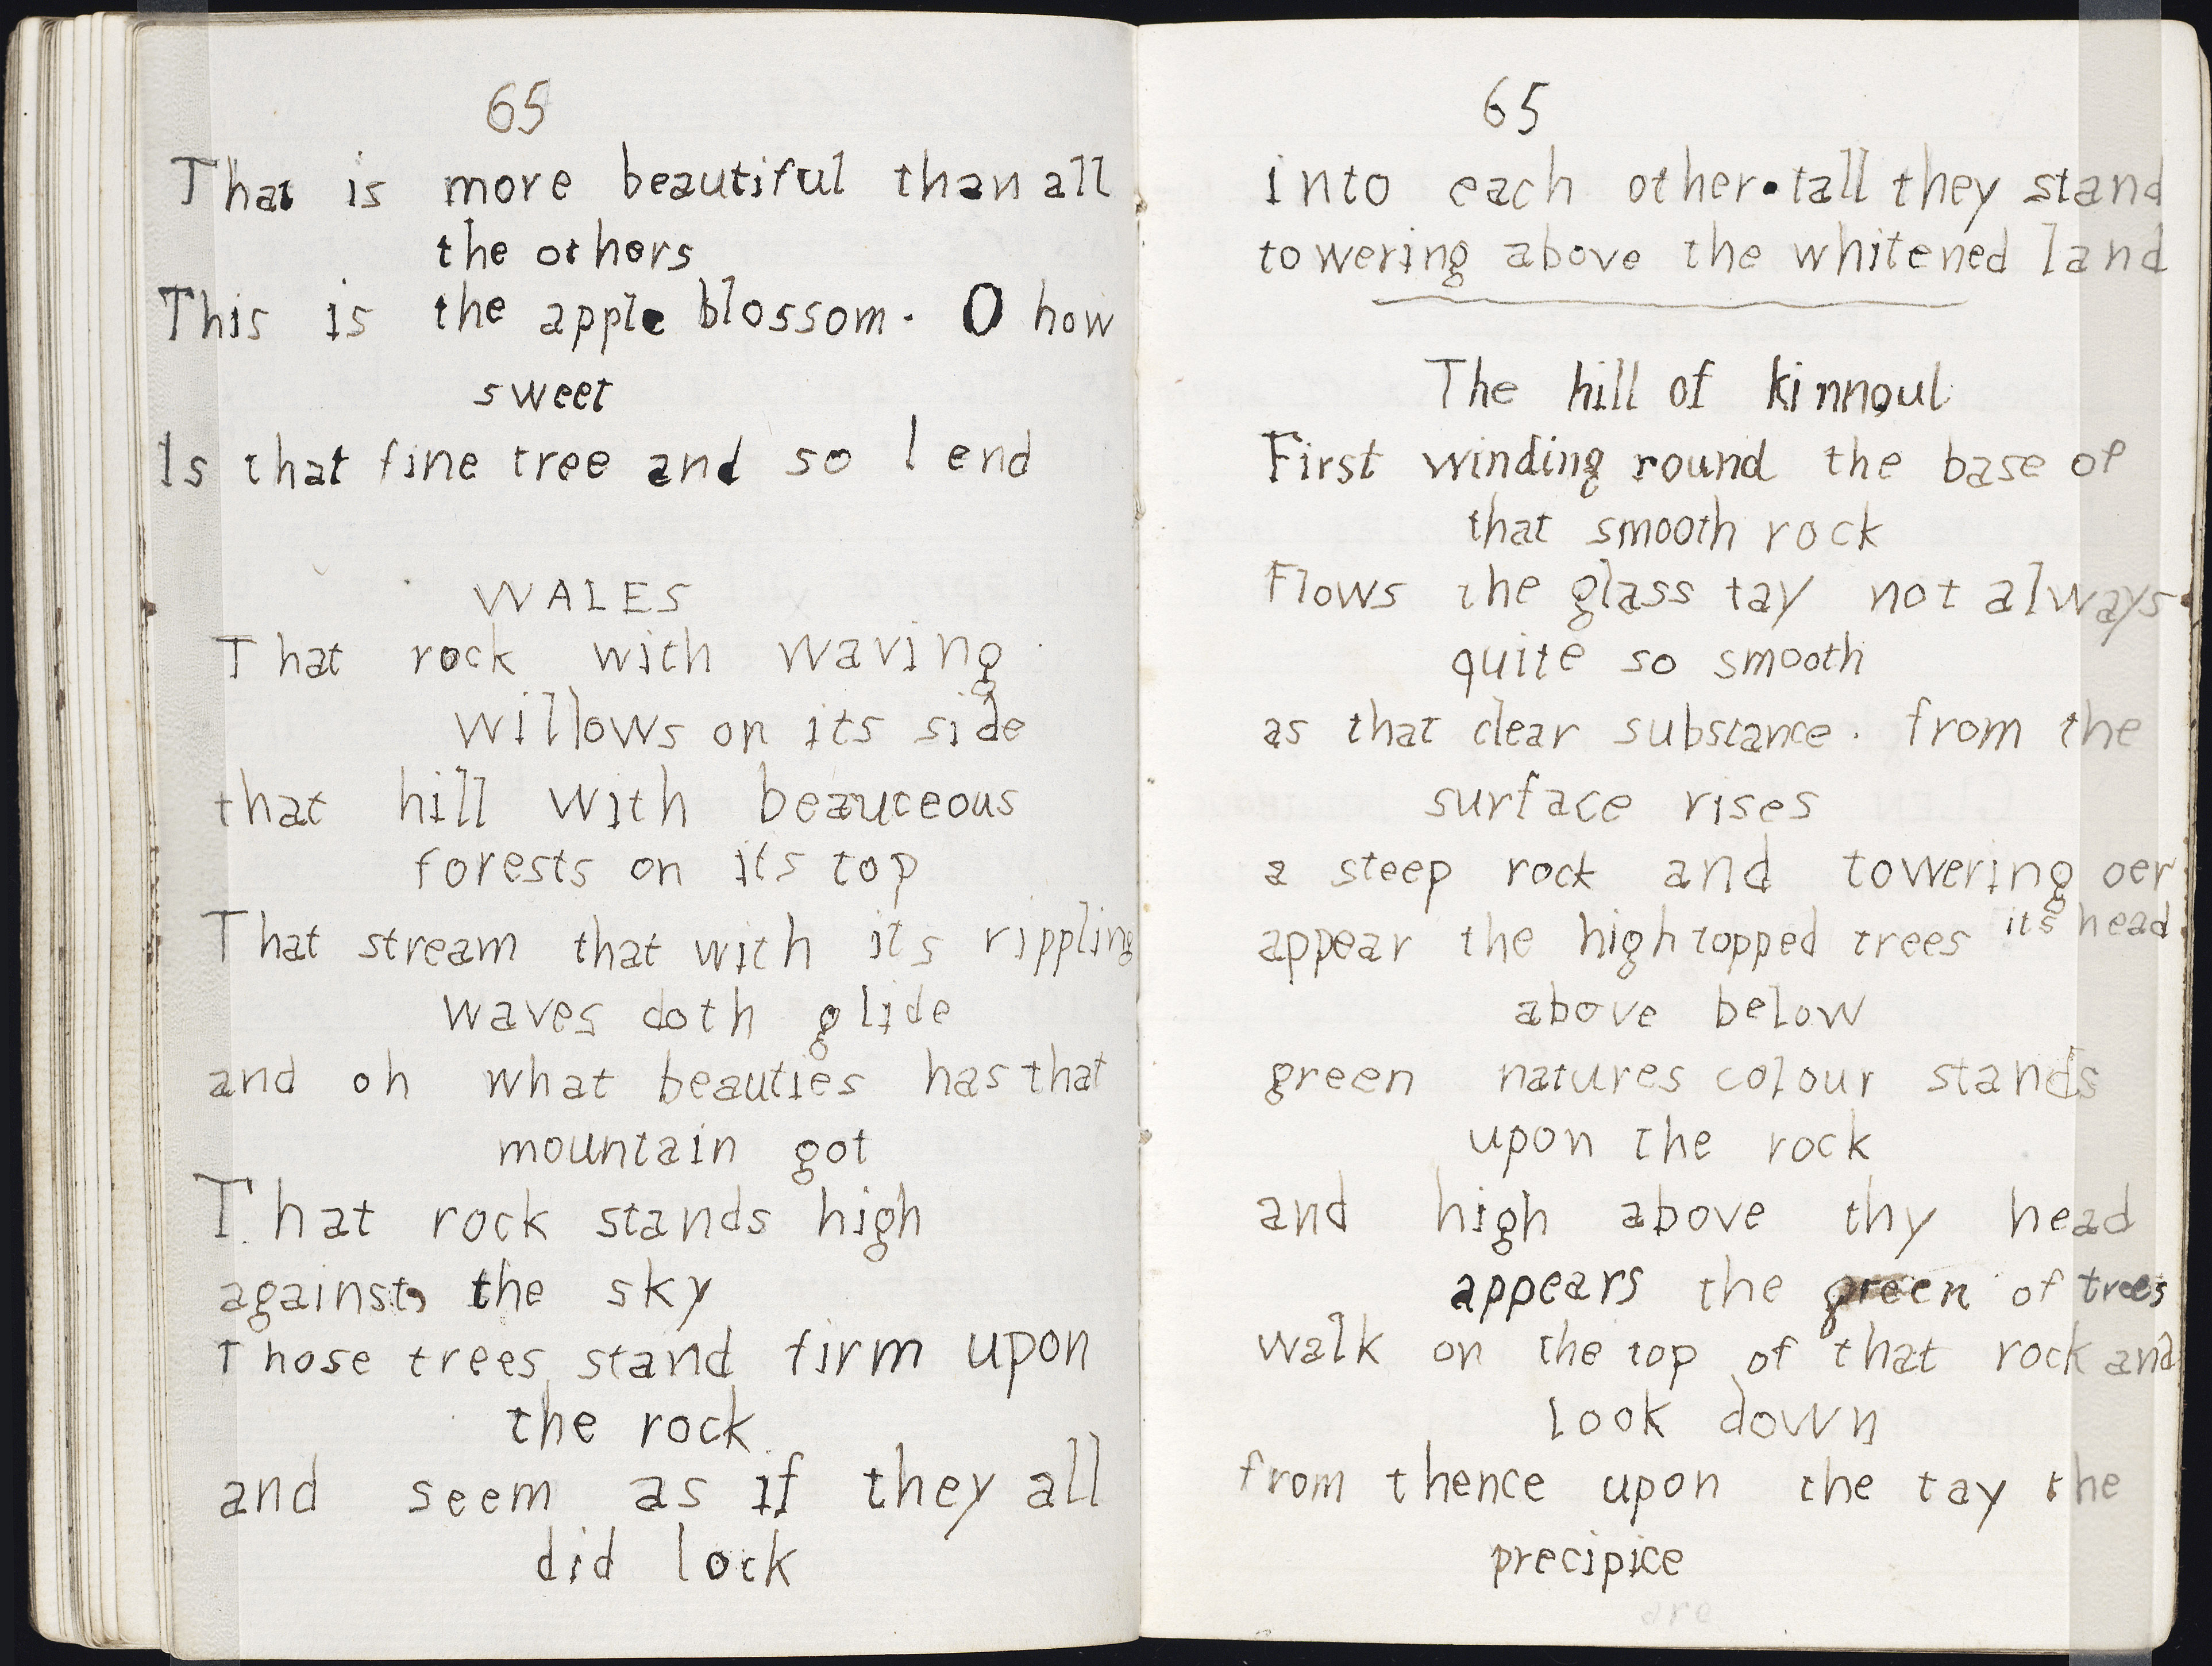 65
That is more beautiful than all
the others
This is the apple blossom. O how
sweet
Is that fine tree and so I end
WALES
That rock with waving
willows on its side
that hill with beauteous
forests on its top
That stream that with its rippling
waves doth glide
and oh what beauties has that
mountain got
That rock stands high
against the sky
Those trees stand firm upon
the rock
and seem as if they all
did lock
65
into each other. tall they stand
towering above the whitened land
The hill of kinnoul
First winding round the base of
that smooth rock
Flows the glass tay not always
quite so smooth
as that clear substance. from the
surface rises
a steep rock and towering oer
its head
appear the high topped trees
above below
green natures colour stands
upon the rock
and high above thy head
appears the green of trees
walk on the top of that rock and
look down
from thence upon the tay the
precipice
are